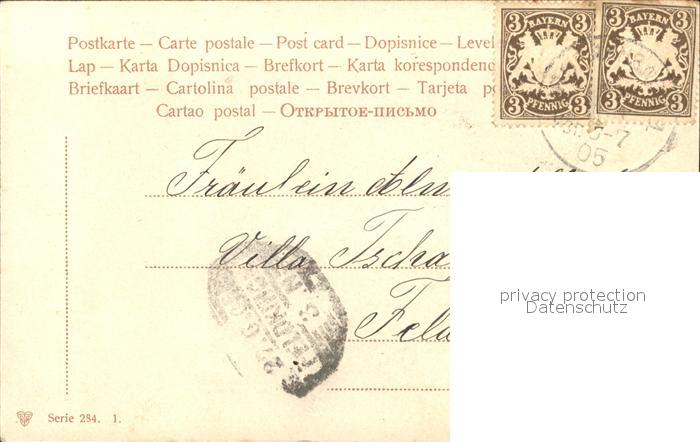 Postkarte — Carte postale — Post card — Dopisnice — Level
Lap — Karta Dopisnica — Brefkort — Karta korespondenc
Briefkaart — Cartolina postale — Brevkort — Tarjeta po
Cartao postal — Открытое-письмо
3 BAYERN 3
3 PFENNIG 3
3 BAYERN 3
3 PFENNIG 3
6-7
05
Fräulein
Villa Tscha
Feld
privacy protection
Datenschutz
Serie 284. 1.